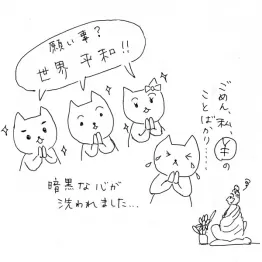 願い事?
世界平和!!
ごめん、私、¥の
ことばかり……
暗黒な心が
洗われました…